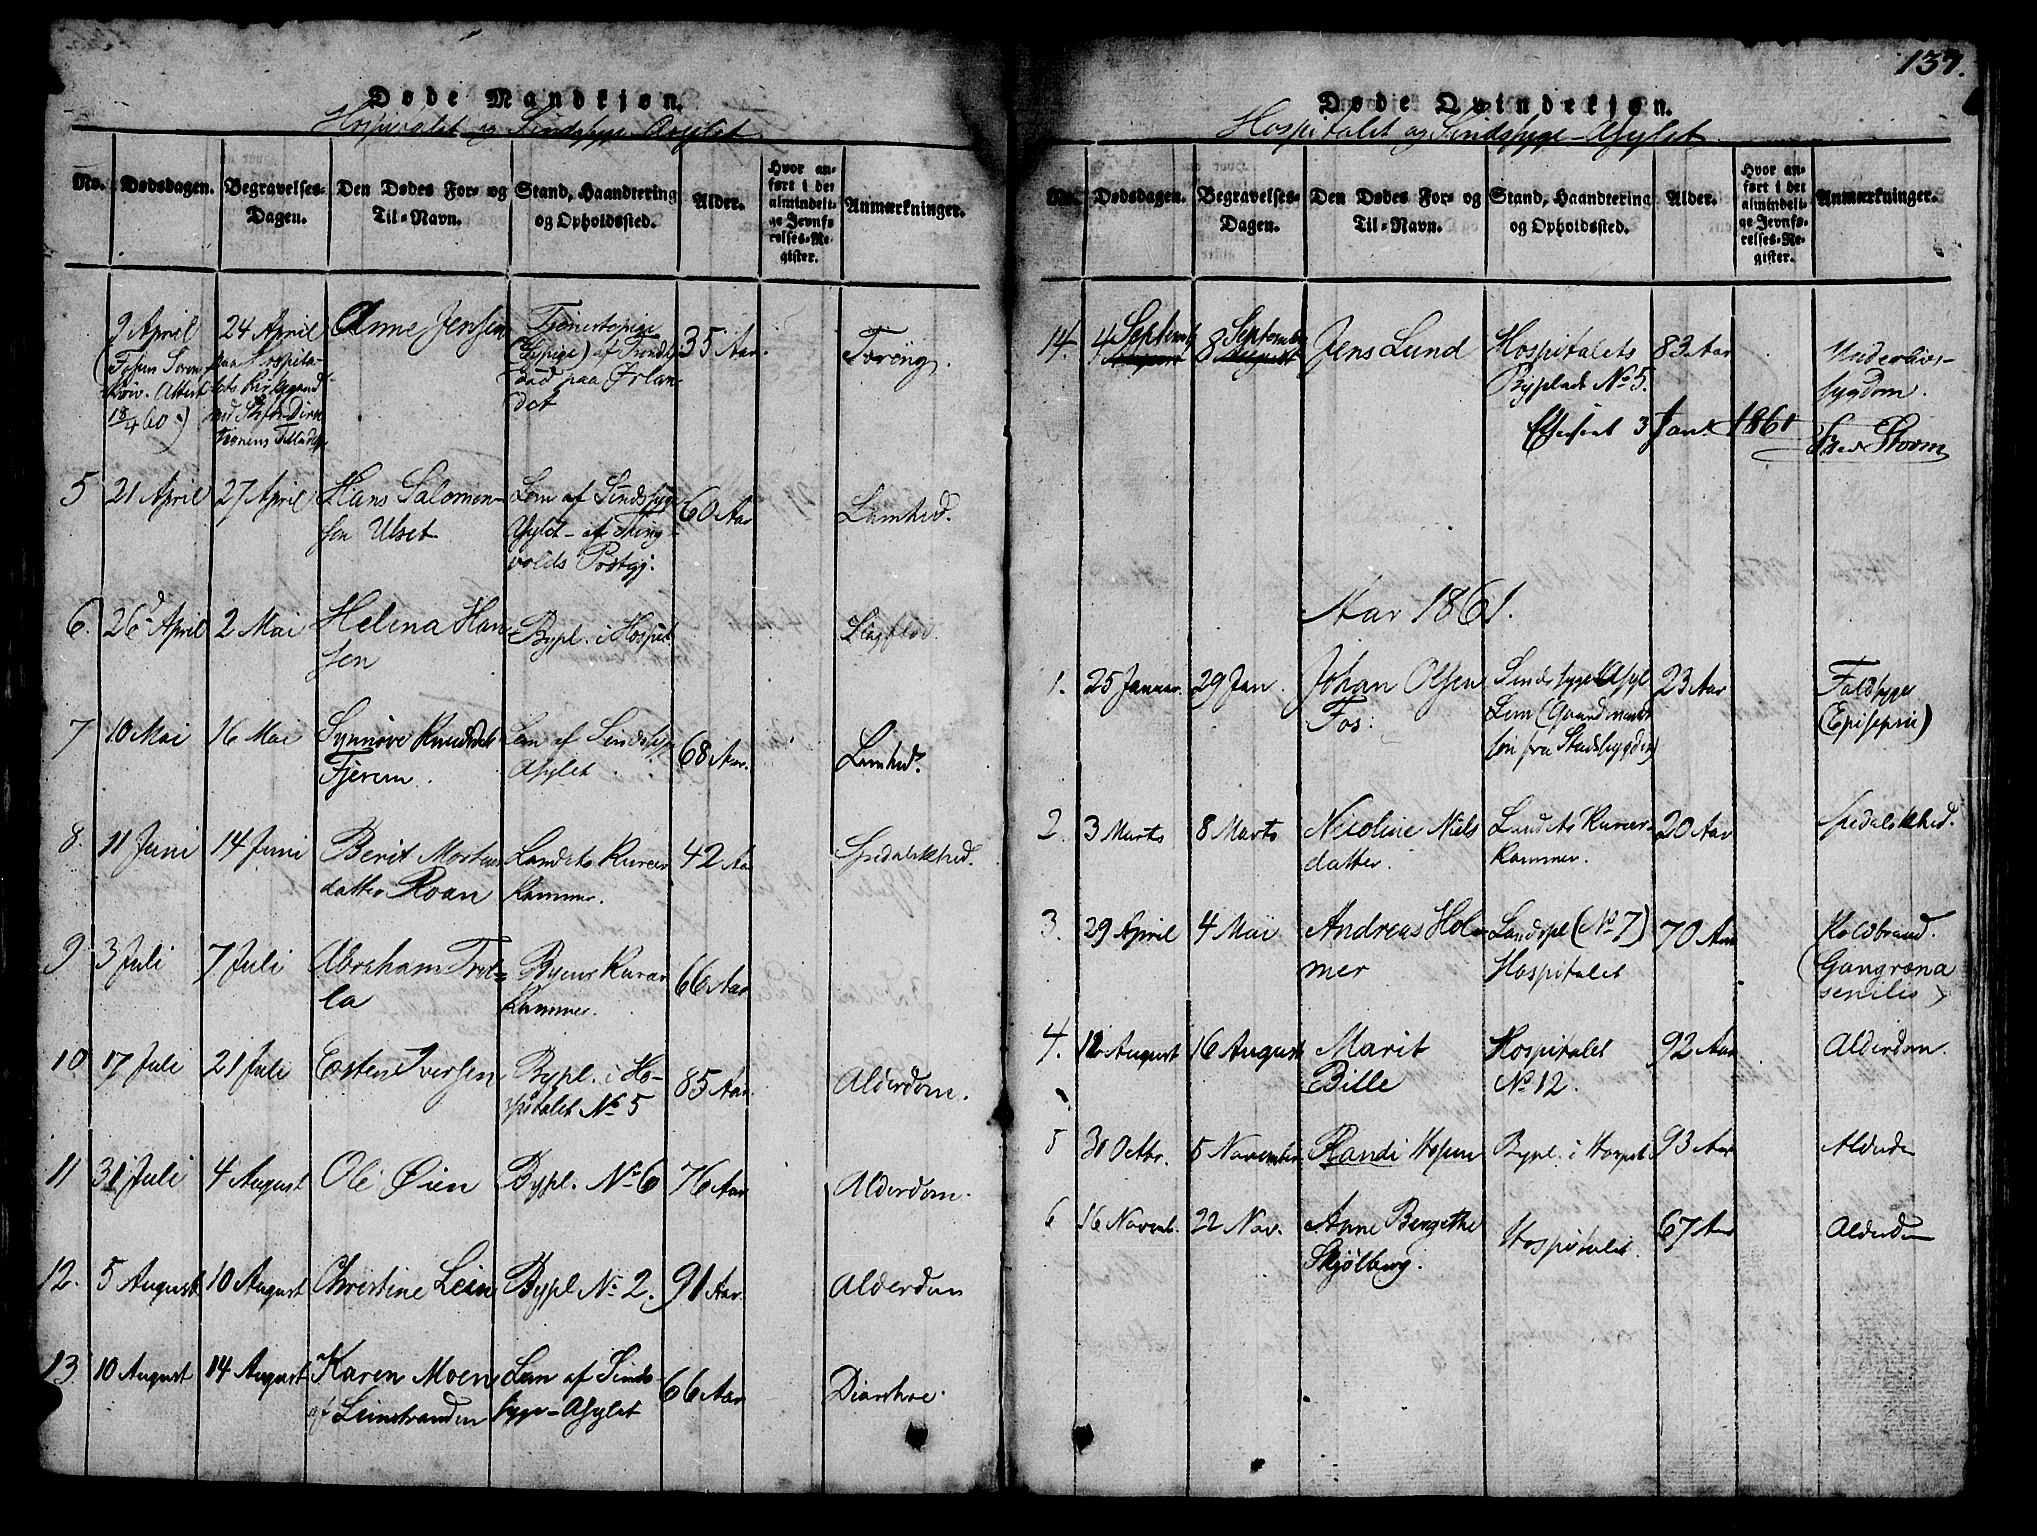 Døde Mandkjøn.
Hospitalet og Sindssyge-Asylet
No.
Dødsdagen.
Begravelses-
Dagen.
Den Dødes For- og
Til-Navn.
Stand, Haandtering
og Opholdssted.
Alder.
Hvor an-
ført i det
almindeli-
ge Jevnfø-
relses-Re-
gister.
Anmærkninger.
9 April
24 April
Anne Jensen
35 Aar.
paa Hospita-
18/4 60.)
paa Ørlan-
det
5
21 April
27 April
Hans Salomon-
sen Ulset
Lem af Sindssyge
Asylet - af Thing-
volds Præstgj.
60 Aar
Lamhed.
6.
26 April
2 Mai
Helena Han
sen
Bypl. i Hospit
Slagflod
7
10 Mai
16 Mai
Synnøve Knudsdt
Fjerem.
Lem af Sindssyge
Asylet
68 Aar.
Lamhed.
8.
11 Juni
14 Juni
Berit Morten
datter Roan
Landets Kurer
kammer.
42 Aar
Spedalskhed.
9
3 Juli
7 Juli
Abraham Trol-
la
Byens Kurer
kammer.
66 Aar
10
17 Juli
21 Juli
Esten Iversen
Bypl. i Ho-
spitalet No 5
85 Aar.
Alderdom.
11
31 Juli
4 August
Ole Øien
Bypl. No 6
76 Aar
Alderdom.
12.
5 August
10 August
Christine Lein
Bypl No 2.
91 Aar.
Alderdom
13
10 August
14 August
Karen Moen
af Leinstranden
Lem af Sinds-
syge-Asylet
66 Aar
Diarrhoe.
137.
Døde Qvindekjøn.
Hospitalet og Sindssyge-Asylet
No.
Dødsdagen.
Begravelses-
Dagen.
Den Dødes For- og
Til-Navn.
Stand, Haandtering
og Opholdssted.
Alder.
Hvor an-
ført i det
almindeli-
ge Jevnfø-
relses-Re-
gister.
Anmærkninger.
14
4 Septemb
August
8 September
August
Jens Lund
Hospitalets
Byplads No 5.
83 Aar
Underlivs-
sygdom.
Efterseet 3 Jan. 1861
Fred Storm
Aar 1861.
1.
25 Januar.
29 Jan.
Johan Olsen
Fos.
Sindssyge Asyl
Lem (Gaardmands
søn fra Stadsbygden)
23 Aar
Faldsyge
(Epilepsie)
2.
3 Marts
8 Marts
Nicoline Niels
datter.
Landets Kurer-
kammer.
20 Aar
Spedalskhed.
3.
29 April
4 Mai
Andreas Hol-
mer
Landspl (No 7)
Hospitalet
70 Aar
Koldbrand.
(Gangræna
senilis)
4.
12 August
16 August
Marit
Bille
Hospitalet
No 12.
92 Aar
Alderdom.
5
31 Octbr.
5 November
Randi Hopen
Bypl. i Hospit
93 Aar
Alderdo
6
16 Novemb.
22 Nov.
Anne Bergithe
Skjølberg.
Hospitalet.
67 Aar
Alderdo